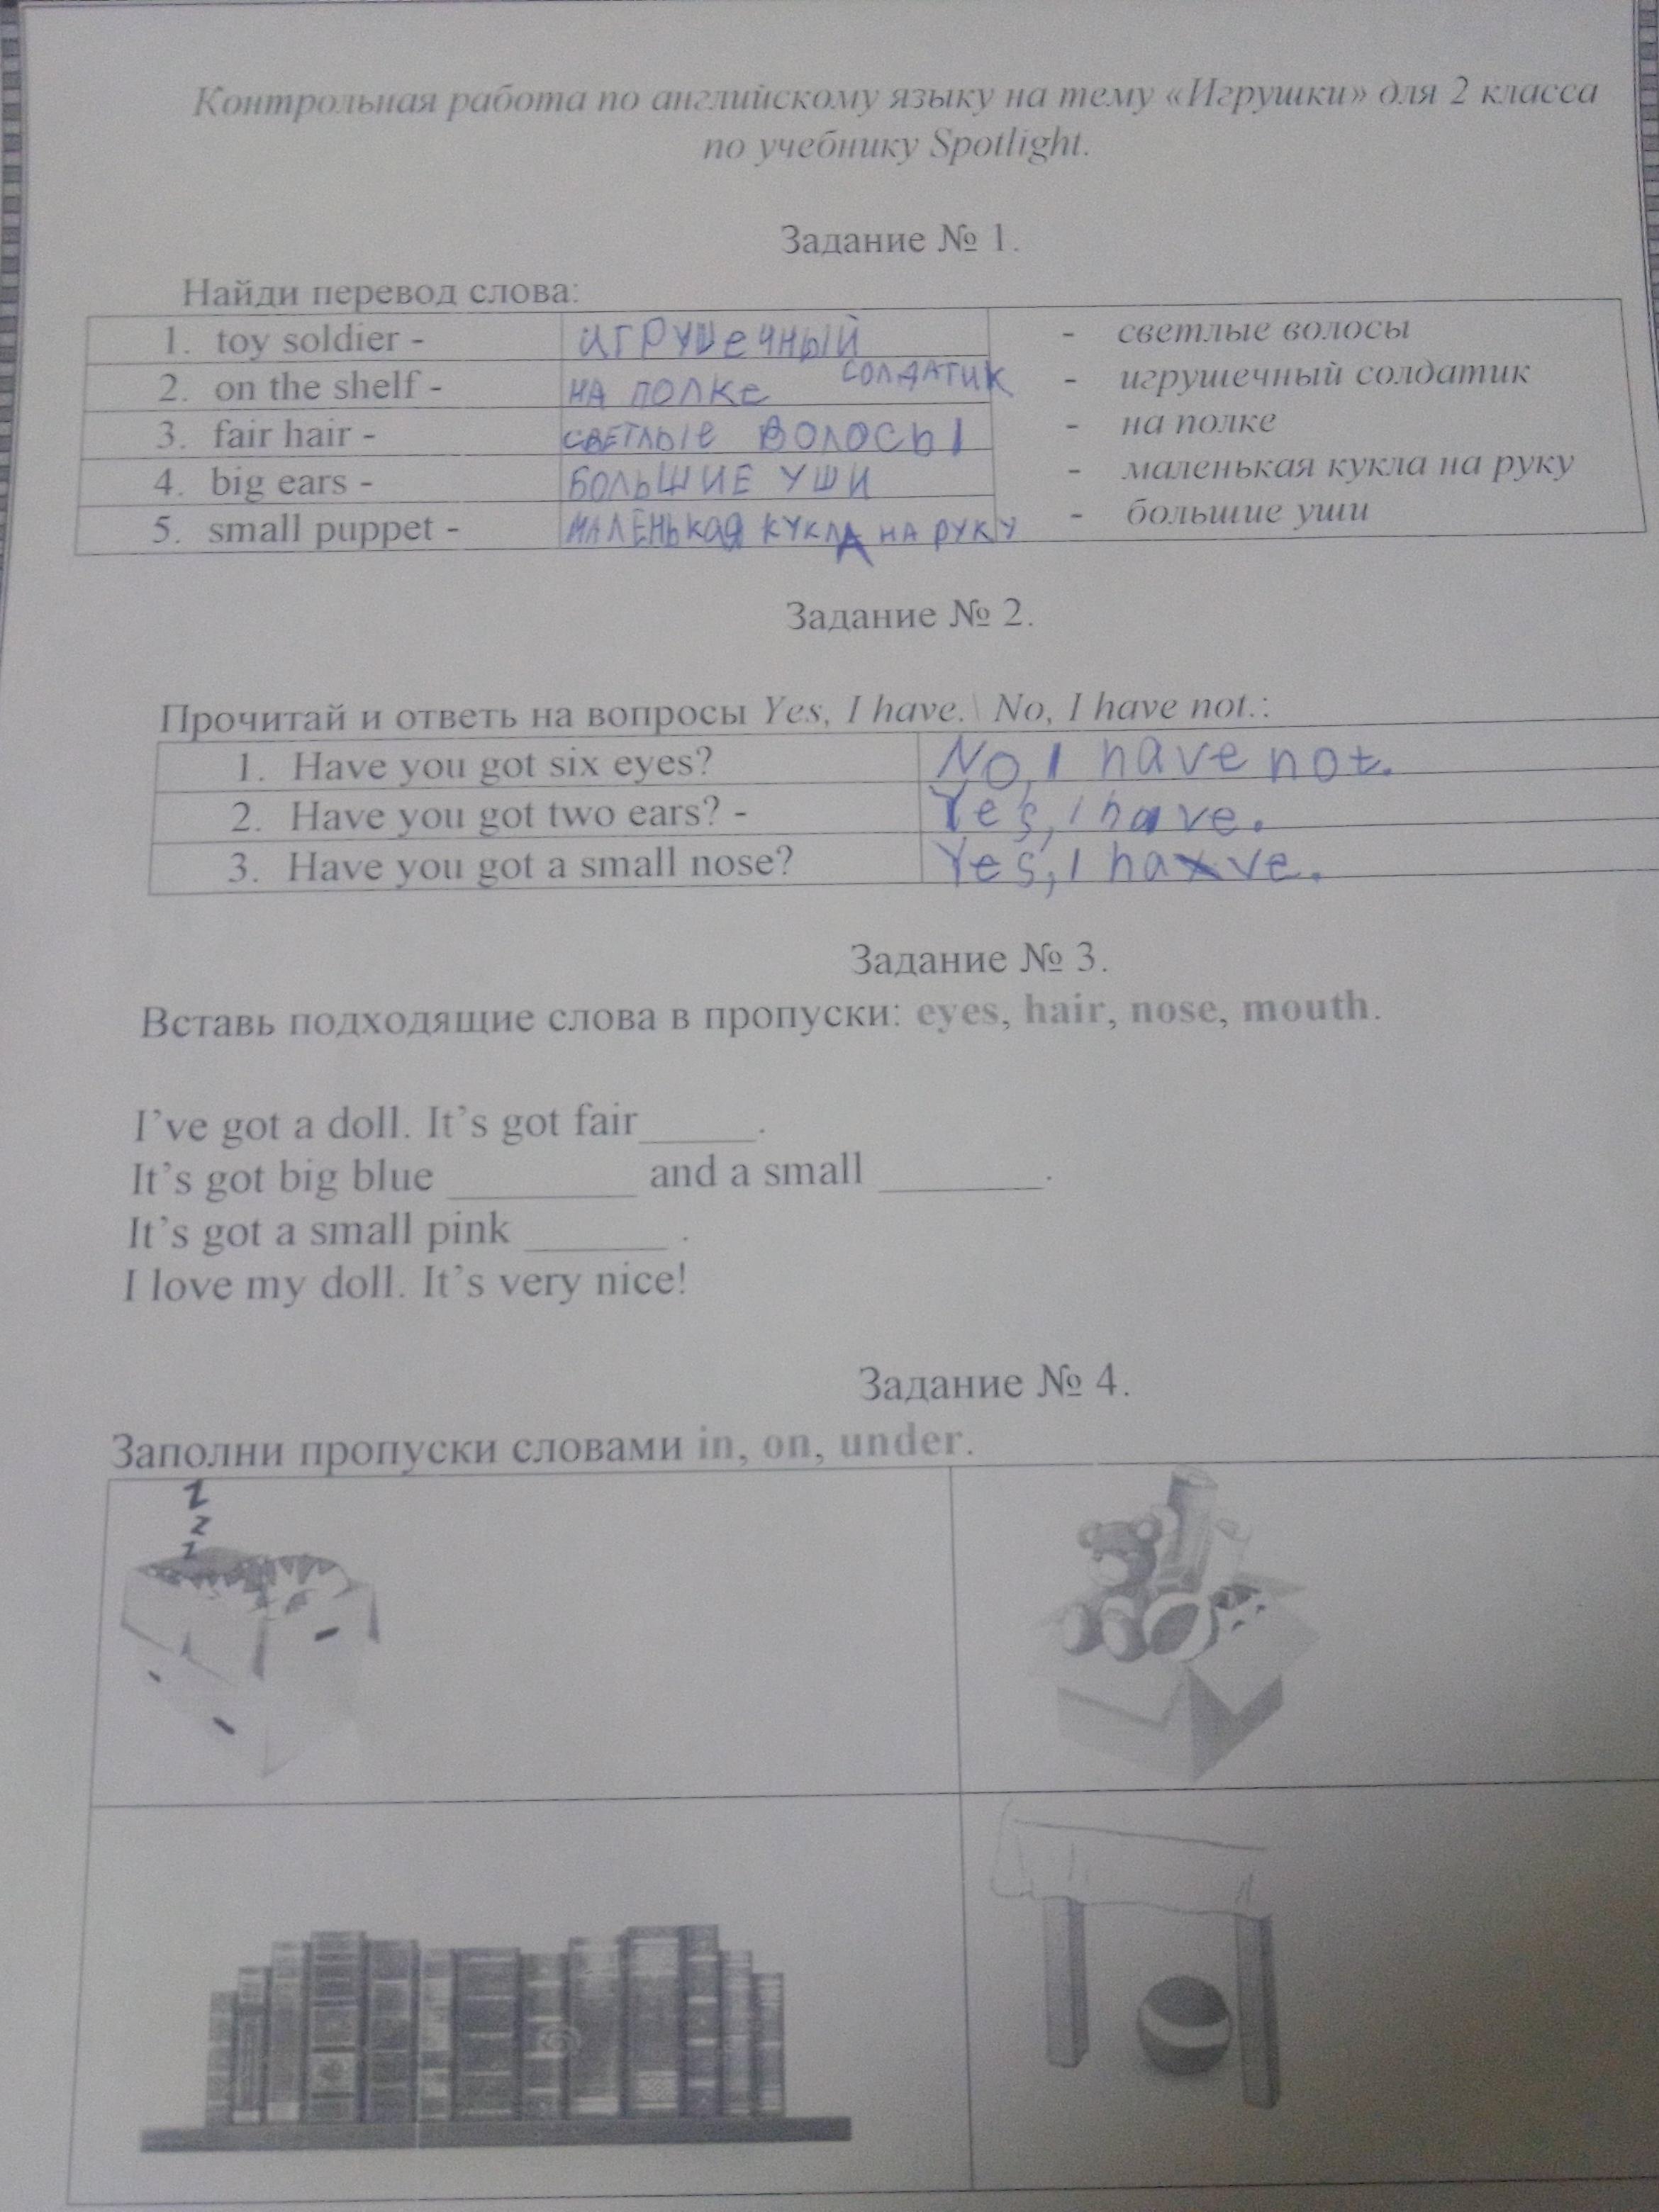 Контрольная работа по английскому языку на тему «Игрушки» для 2 класса
по учебнику Spotlight.
Задание № 1.
Найди перевод слова:
1. toy soldier - игрушечный солдатик - светлые волосы
2. on the shelf - на полке - игрушечный солдатик
3. fair hair - светлые волосы - на полке
4. big ears - большие уши - маленькая кукла на руку
5. small puppet - маленькая кукла на руку - большие уши
Задание № 2.
Прочитай и ответь на вопросы Yes, I have.\ No, I have not.:
1. Have you got six eyes? No, I have not.
2. Have you got two ears? - Yes, I have.
3. Have you got a small nose? Yes, I have.
Задание № 3.
Вставь подходящие слова в пропуски: eyes, hair, nose, mouth.
I've got a doll. It's got fair______.
It's got big blue _________ and a small ________.
It's got a small pink _______ .
I love my doll. It's very nice!
Задание № 4.
Заполни пропуски словами in, on, under.
z
z
z